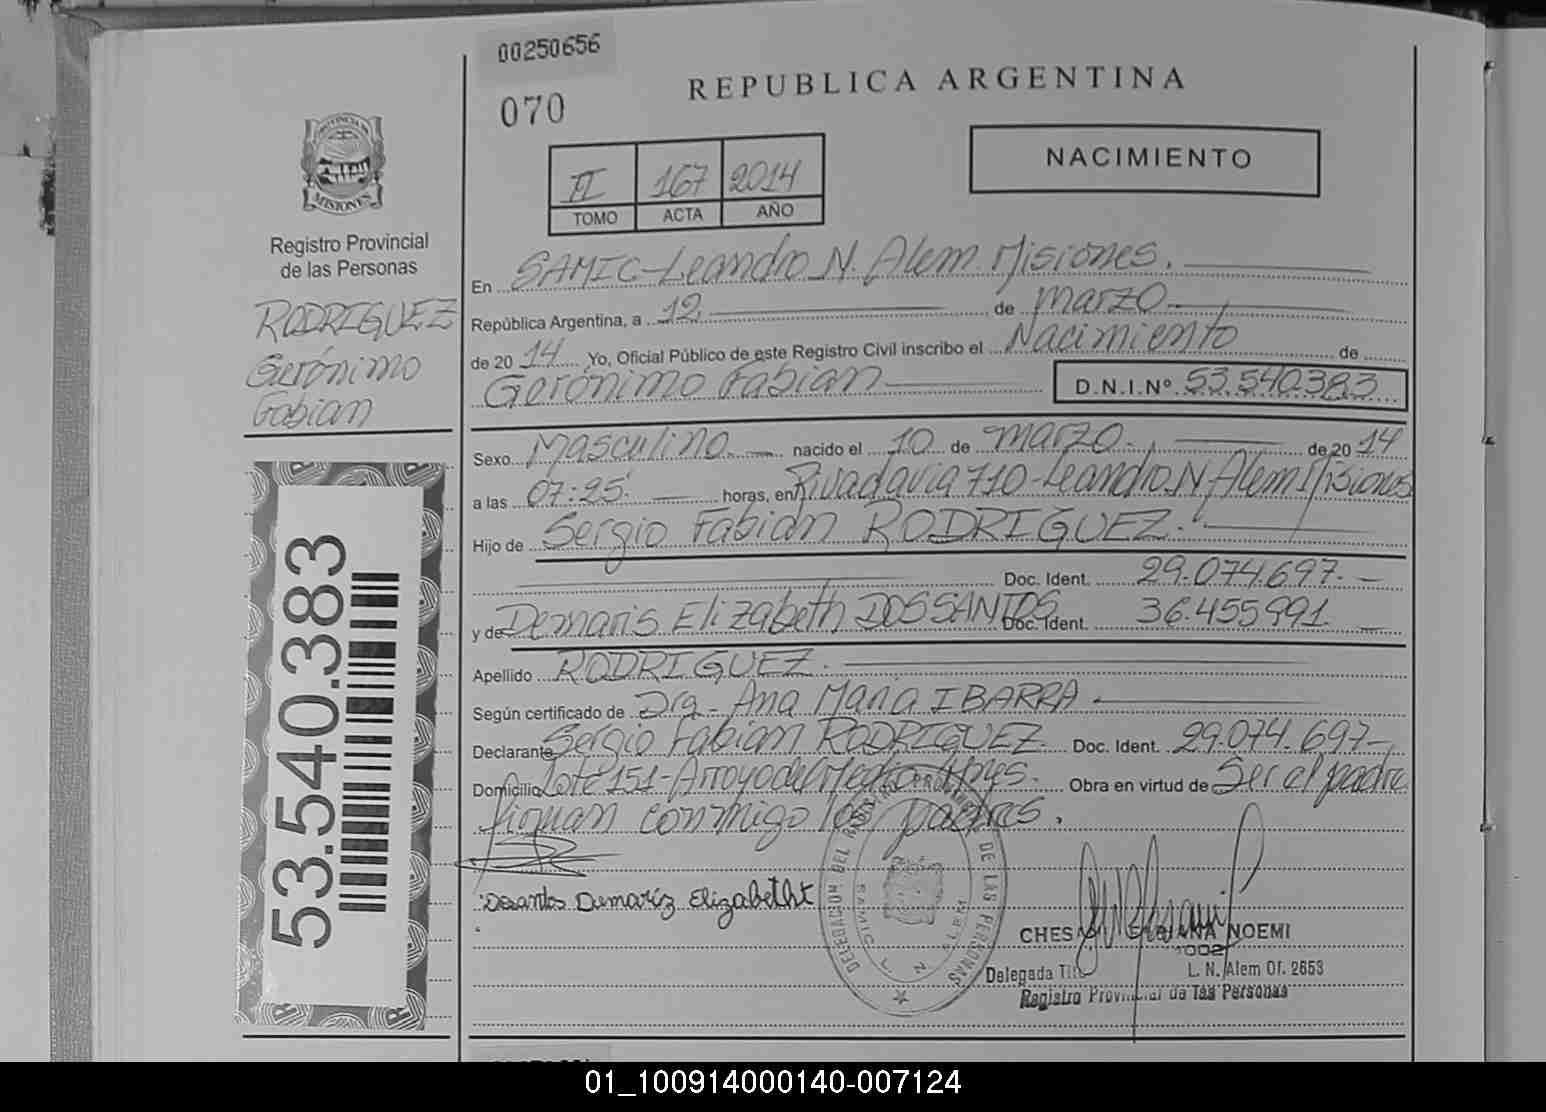 00250656
070
REPUBLICA ARGENTINA
NACIMIENTO
II 167 2014
TOMO ACTA AÑO
PROVINCIA DE
MISIONES
Registro Provincial
de las Personas
RODRIGUEZ
Gerónimo
Fabian
53.540.383
En SAMIC-Leandro N. Alem Misiones.
República Argentina, a 12 de marzo
de 2014 Yo, Oficial Público de este Registro Civil inscribo el Nacimiento de
Gerónimo Fabian D.N.I.Nº 53.540.383
Sexo Masculino nacido el 10 de marzo de 2014
a las 07:25 horas, en Rivadavia 710-Leandro N Alem Misiones
Hijo de Sergio Fabian RODRIGUEZ.
Doc. Ident. 29.074.697.
y de Demaris Elizabeth DOS SANTOS Doc. Ident. 36.455.991.
Apellido RODRIGUEZ.
Según certificado de Dra. Ana Maria IBARRA
Declarante Sergio Fabian RODRIGUEZ Doc. Ident. 29.074.697
Domicilio Lote 151-Arroyo del Medio Obra en virtud de Ser el padre
firman conmigo los padres.
Elizabetht
DELEGACION DEL DE LAS PERSONAS
SAMIC L. N. ALEM
CHES NOEMI
1002
Delegada L. N. Alem Of. 2653
Registro Provincial de las Personas
01_100914000140-007124